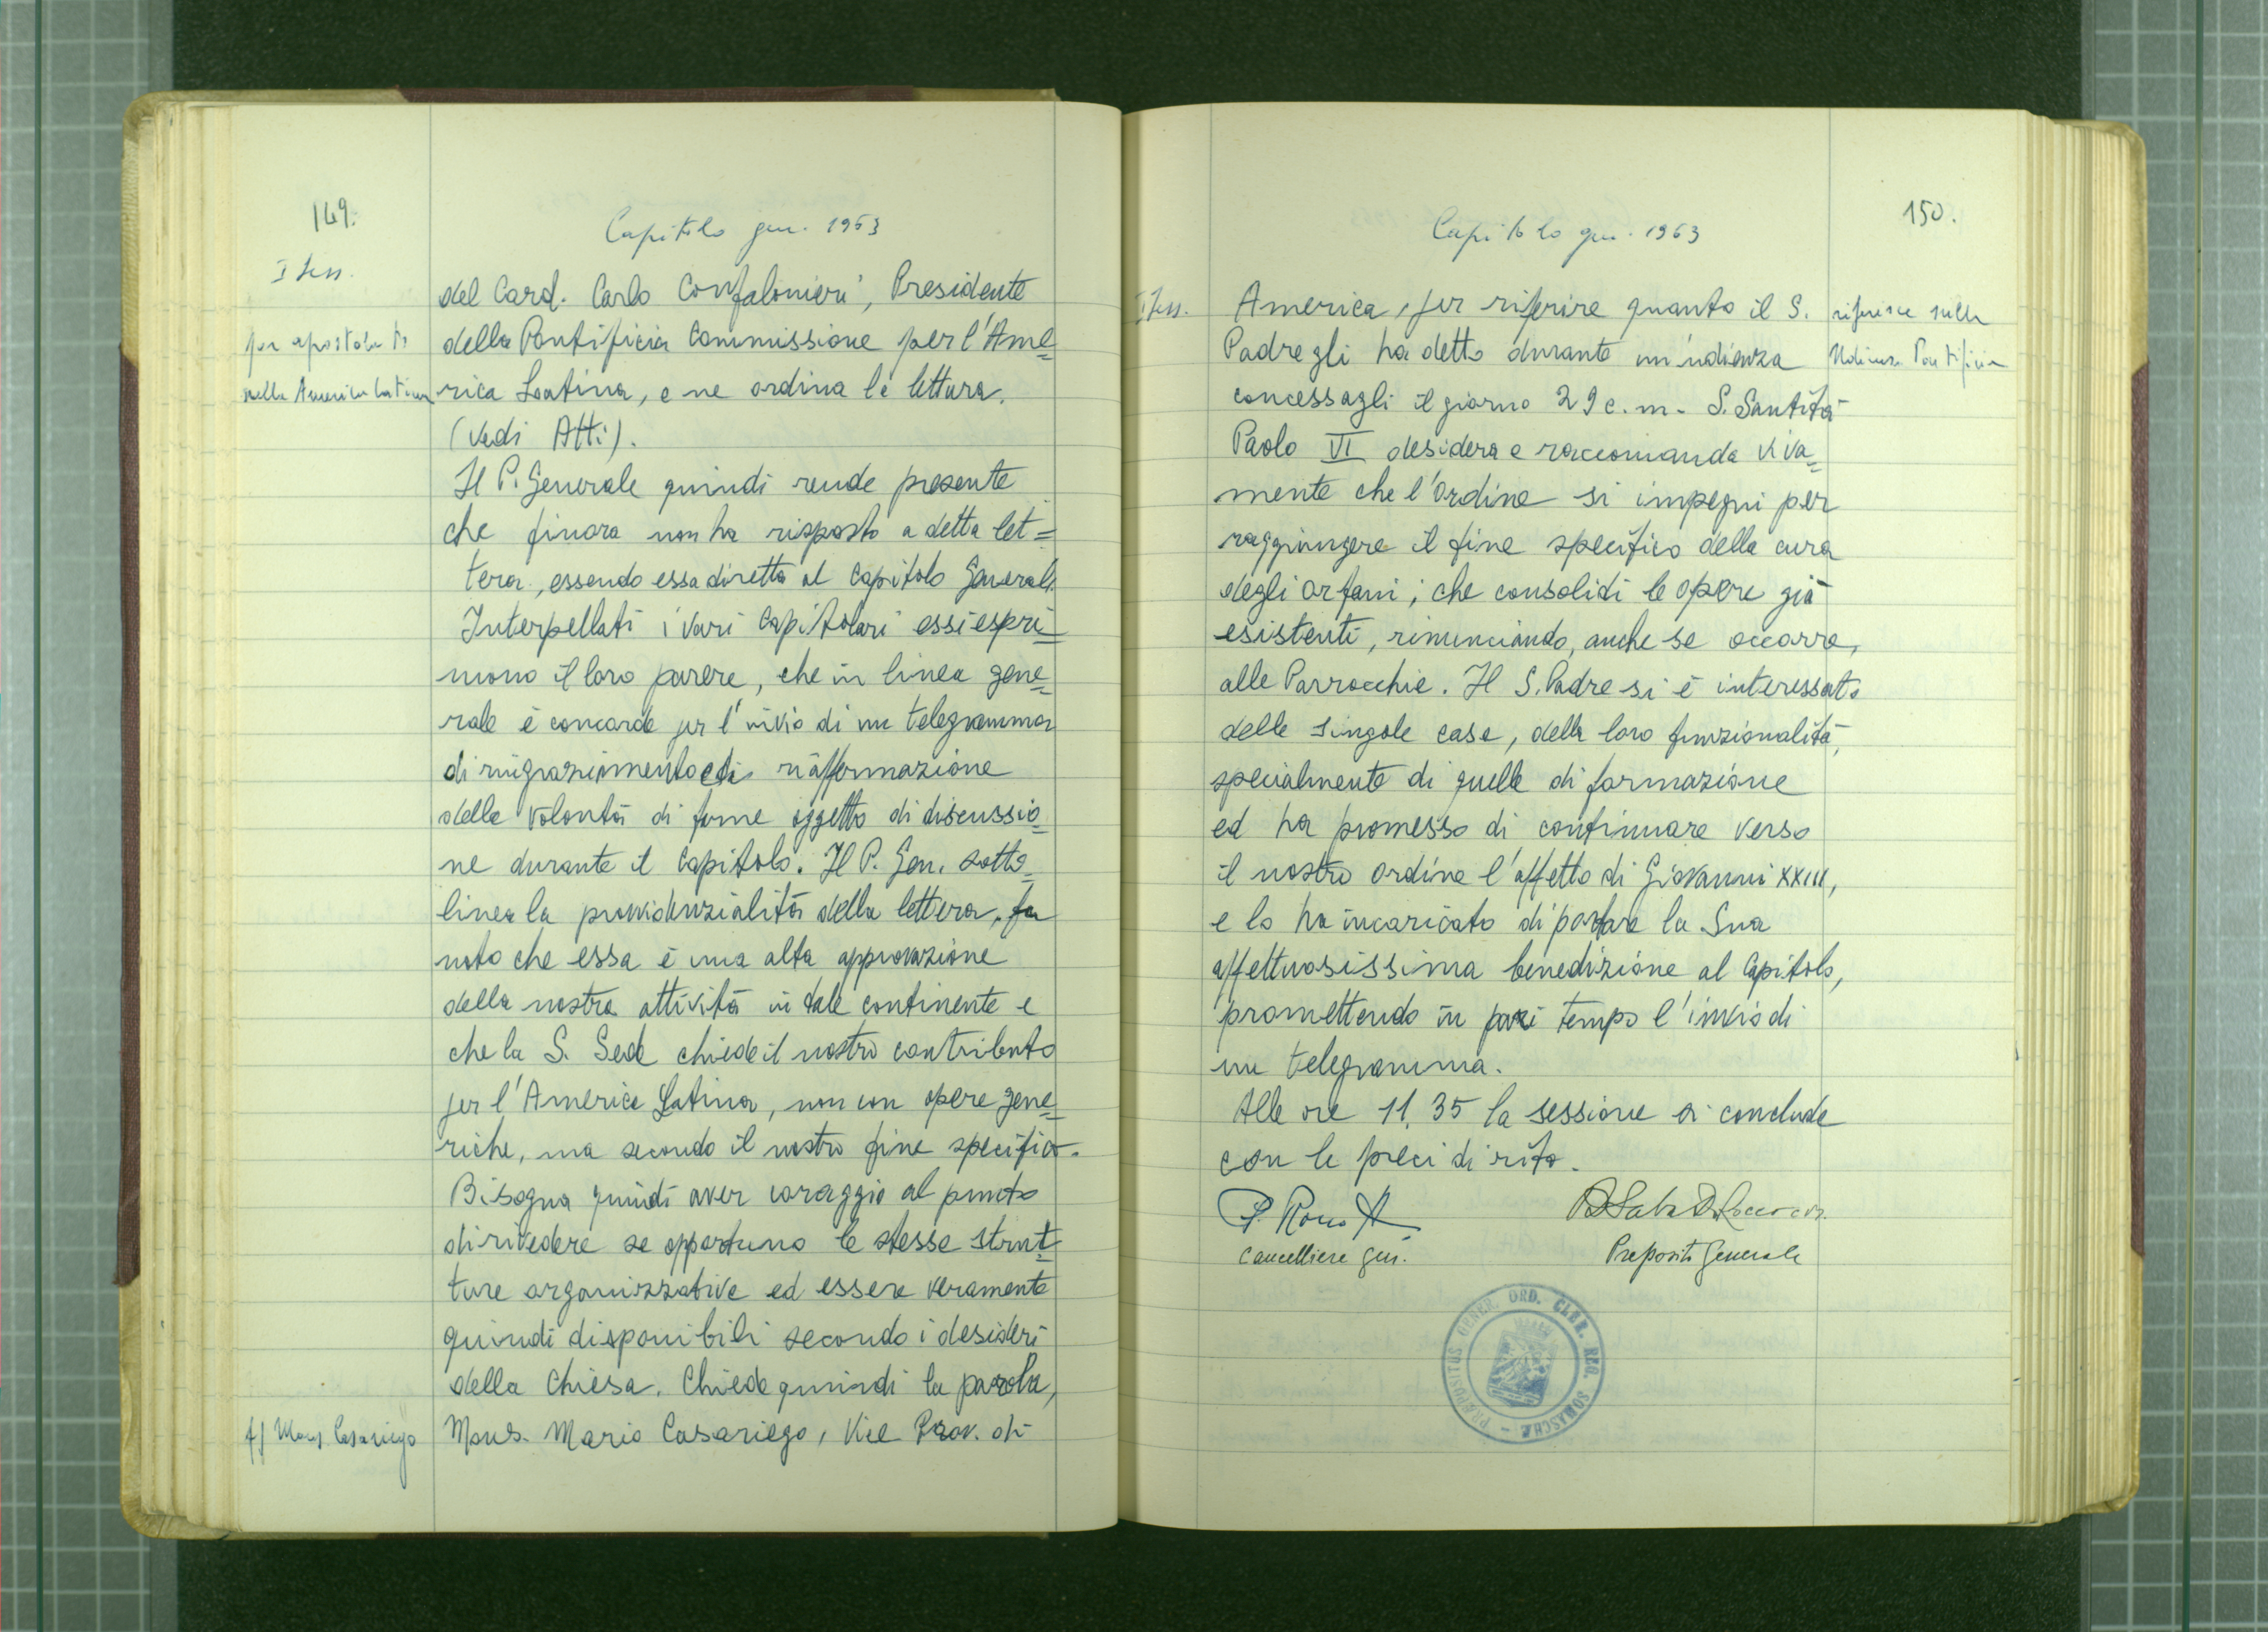 149.
Capitolo gen. 1963
I Sess.
per apostolato
nella America Latina
del Card. Carlo Confalonieri, Presidente
della Pontificia Commissione per l'Ame=
rica Latina, e ne ordina la lettura.
(Vedi Atti).
Il P. Generale quindi rende presente
che finora non ha risposto a detta let=
tera, essendo essa diretta al Capitolo Generale.
Interpellati i vari Capitolari essi espri=
mono il loro parere, che in linea gene=
rale è concorde per l'invio di un telegramma
di ringraziamento e di riaffermazione
della volontà di farne oggetto di discussio=
ne durante il Capitolo. Il P. Gen. sotto=
linea la provvidenzialità della lettera, fa
noto che essa è una alta approvazione
della nostra attività in tale continente e
che la S. Sede chiede il nostro contributo
per l'America Latina, non con opere gene=
riche, ma secondo il nostro fine specifico.
Bisogna quindi aver coraggio al punto
di rivedere se opportuno le stesse strut=
ture organizzative ed essere veramente
quindi disponibili secondo i desideri
della Chiesa. Chiede quindi la parola,
Mons. Mario Casariego, Vice Prov. di
f) Mons. Casariego
150.
Capitolo gen. 1963
I Sess.
America, per riferire quanto il S.
Padre gli ha detto durante un'udienza
concessagli il giorno 29 c. m. S. Santità
Paolo VI desidera e raccomanda viva=
mente che l'Ordine si impegni per
raggiungere il fine specifico della cura
degli orfani; che consolidi le opere già
esistenti, rinunciando, anche se occorre,
alle Parrocchie. Il S. Padre si è interessato
delle singole case, della loro funzionalità,
specialmente di quelle di formazione
ed ha promesso di continuare verso
il nostro Ordine l'affetto di Giovanni XXIII,
e lo ha incaricato di portare la Sua
affettuosissima benedizione al Capitolo,
promettendo in pari tempo l'invio di
un telegramma.
Alle ore 11,35 la sessione si conclude
con le preci di rito.
riferisce sulla
Udienza Pontificia
Cancelliere gen.
Preposito Generale
PRÆPOSITUS GENER. ORD. CLER. REG. SOMASCHÆ